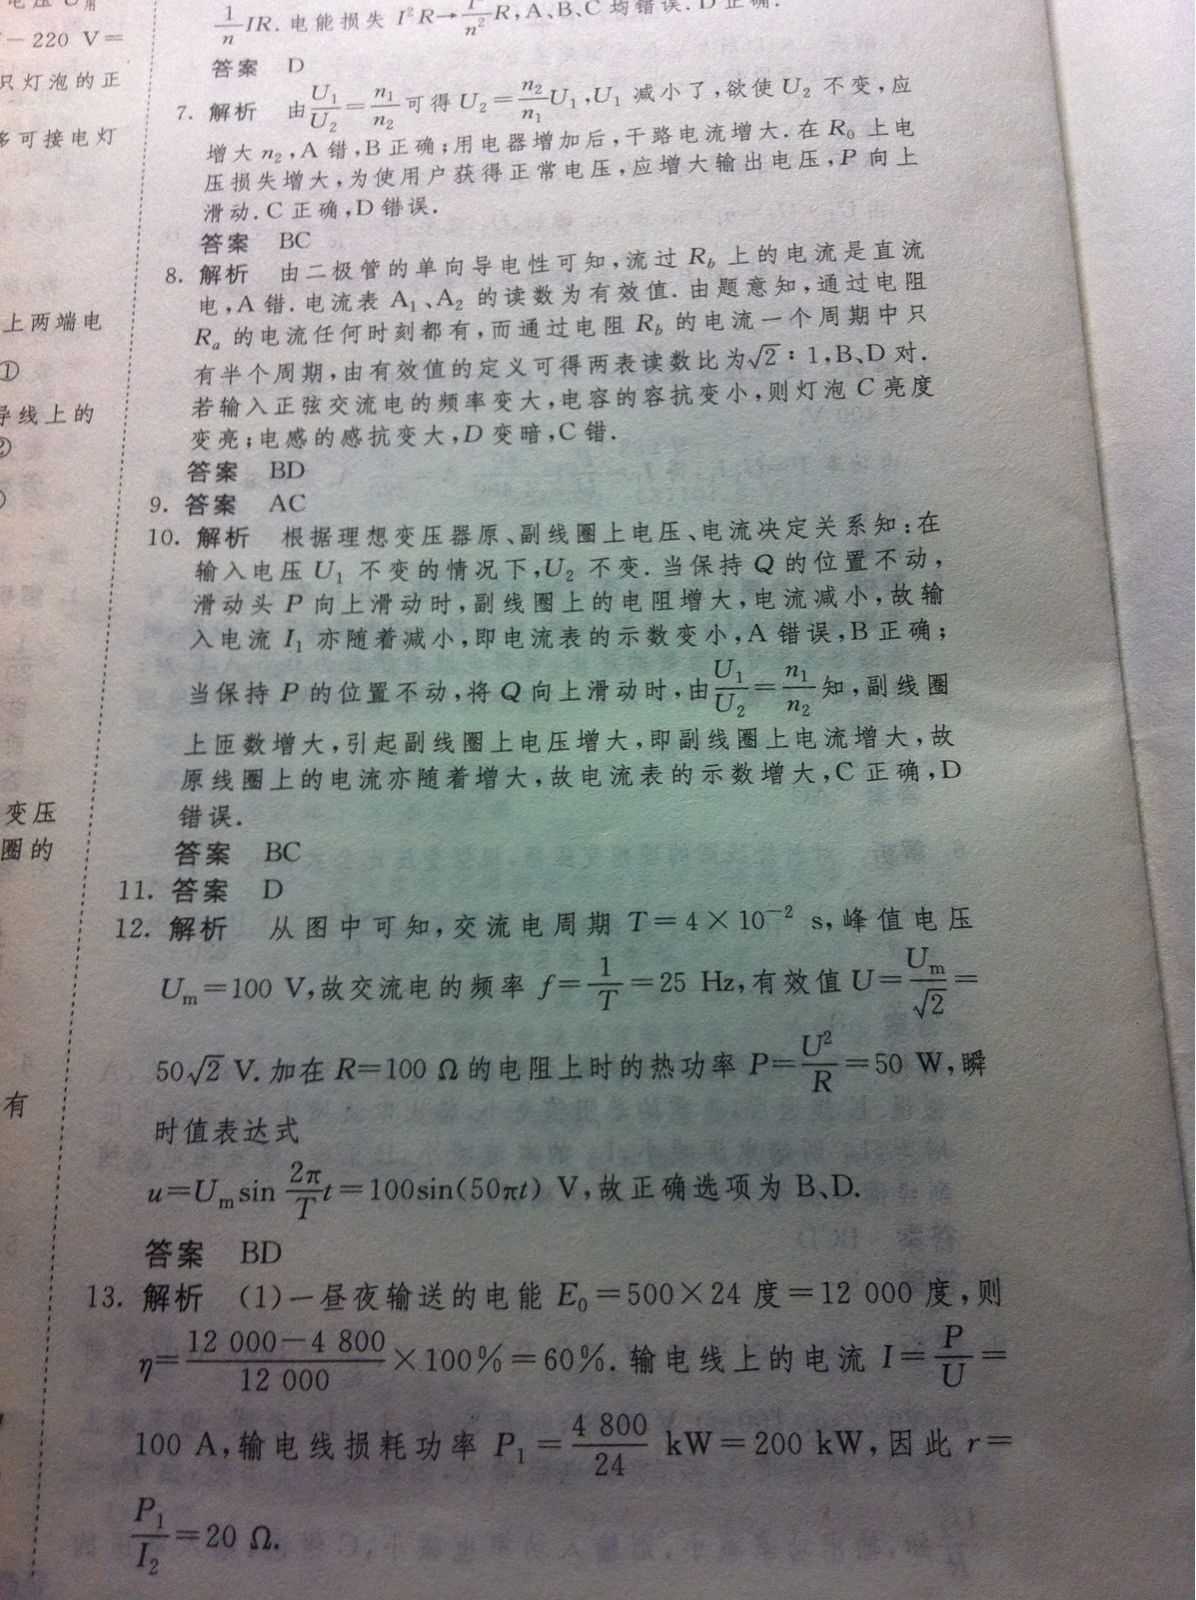 电压U用
-220 V=
只灯泡的正
多可接电灯
上两端电
①
导线上的
②
变压
圈的
有
1/n IR.电能损失 I²R→1/n² R,A、B、C均错误.D正确.
答案 D
7. 解析 由U₁/U₂=n₁/n₂可得U₂=n₂/n₁U₁,U₁减小了,欲使U₂不变,应
增大n₂,A错,B正确;用电器增加后,干路电流增大.在R₀上电
压损失增大,为使用户获得正常电压,应增大输出电压,P向上
滑动.C正确,D错误.
答案 BC
8. 解析 由二极管的单向导电性可知,流过R_b上的电流是直流
电,A错.电流表A₁、A₂的读数为有效值.由题意知,通过电阻
Rₐ的电流任何时刻都有,而通过电阻R_b的电流一个周期中只
有半个周期,由有效值的定义可得两表读数比为√2∶1,B、D对.
若输入正弦交流电的频率变大,电容的容抗变小,则灯泡C亮度
变亮;电感的感抗变大,D变暗,C错.
答案 BD
9. 答案 AC
10. 解析 根据理想变压器原、副线圈上电压、电流决定关系知:在
输入电压U₁不变的情况下,U₂不变.当保持Q的位置不动,
滑动头P向上滑动时,副线圈上的电阻增大,电流减小,故输
入电流I₁亦随着减小,即电流表的示数变小,A错误,B正确;
当保持P的位置不动,将Q向上滑动时,由U₁/U₂=n₁/n₂知,副线圈
上匝数增大,引起副线圈上电压增大,即副线圈上电流增大,故
原线圈上的电流亦随着增大,故电流表的示数增大,C正确,D
错误.
答案 BC
11. 答案 D
12. 解析 从图中可知,交流电周期T=4×10⁻² s,峰值电压
Uₘ=100 V,故交流电的频率f=1/T=25 Hz,有效值U=Uₘ/√2=
50√2 V.加在R=100 Ω的电阻上时的热功率P=U²/R=50 W,瞬
时值表达式
u=Uₘsin 2π/T t=100sin(50πt) V,故正确选项为B、D.
答案 BD
13. 解析 (1)一昼夜输送的电能E₀=500×24度=12 000度,则
η=12 000-4 800/12 000×100%=60%.输电线上的电流I=P/U=
100 A,输电线损耗功率P₁=4 800/24 kW=200 kW,因此r=
P₁/I₂=20 Ω.